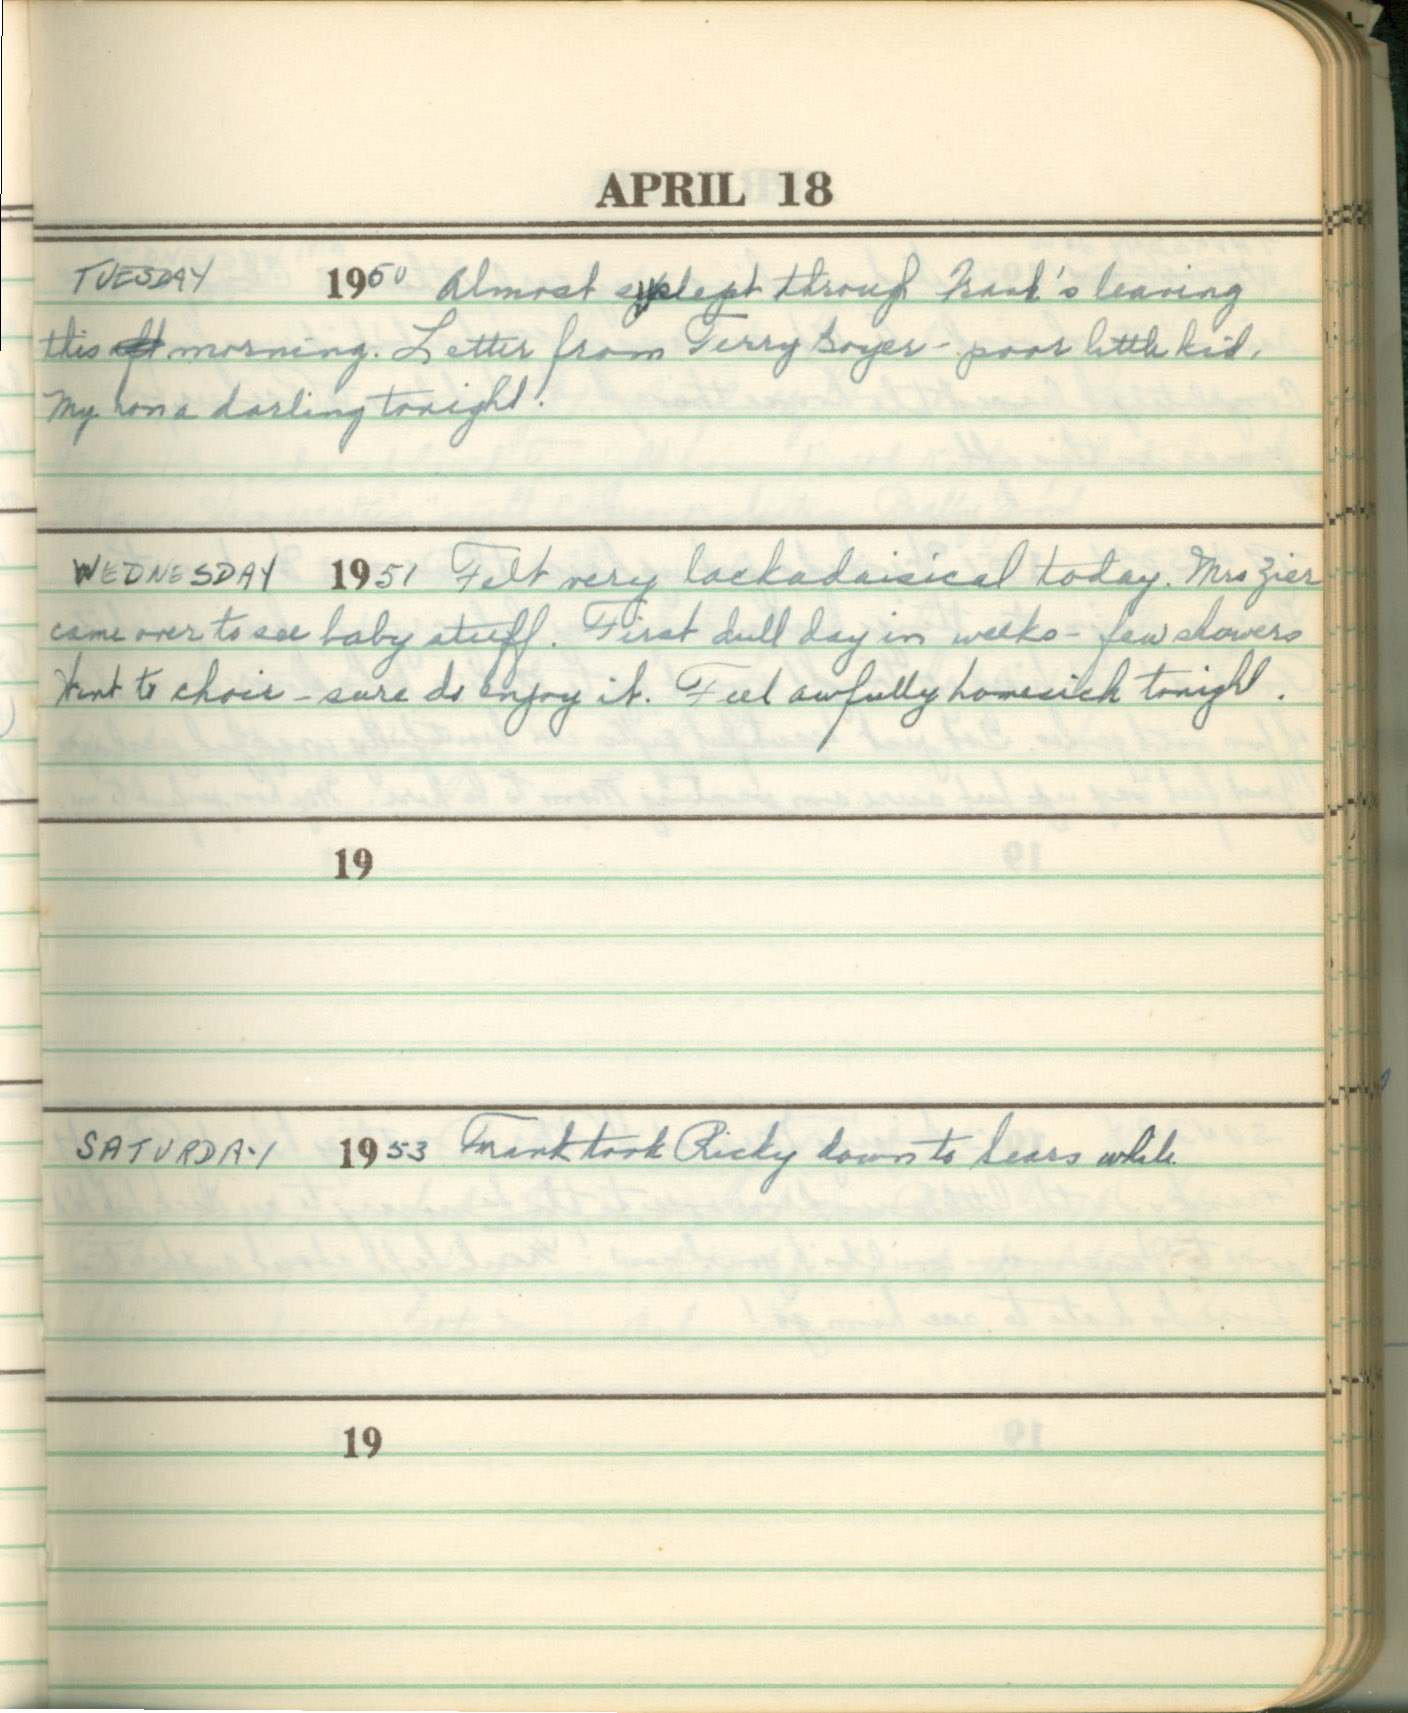 APRIL 18
TUESDAY 1950 Almost slept through Frank's leaving
this morning. Letter from Terry Boyer - poor little kid.
My hon a darling tonight!
WEDNESDAY 1951 Felt very lackadaisical today. Mrs Zier
came over to see baby stuff. First dull day in weeks - few showers
Went to choir - sure do enjoy it. Feel awfully homesick tonight.
19
SATURDAY 1953 Frank took Ricky down to Sears while
19